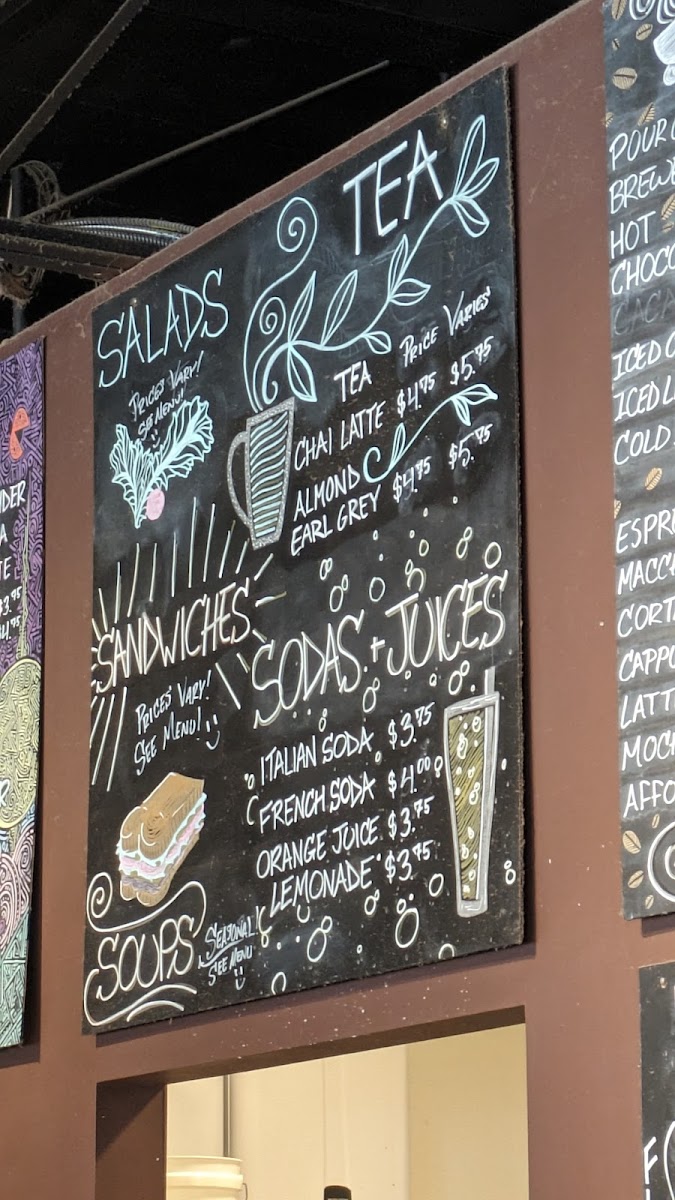 SALADS
PRICES VARY!
SEE MENU!
TEA
TEA PRICE VARIES
CHAI LATTE $4.75 $5.75
ALMOND
EARL GREY $4.75 $5.75
SANDWICHES
PRICES VARY!
SEE MENU!
SODAS + JUICES
ITALIAN SODA $3.75
FRENCH SODA $4.00
ORANGE JUICE $3.75
LEMONADE $3.75
SOUPS
SEASONAL!
SEE MENU
POUR
BREWE
HOT
CHOCO
ICED
ICED L
COLD
ESPRE
MACCH
CORTA
CAPPU
LATT
MOCH
AFFO